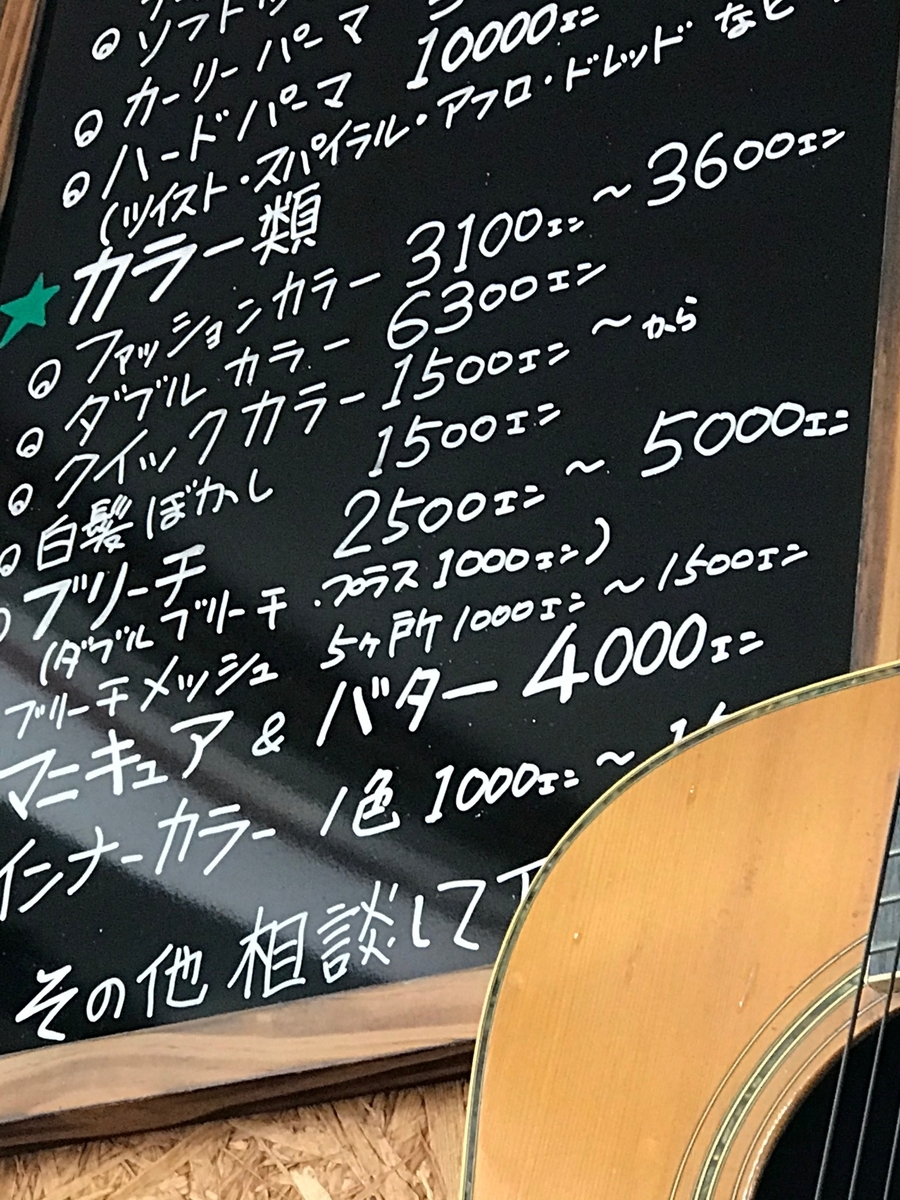 ◎ ソフト
◎ カーリーパーマ
◎ ハードパーマ 10000エン
(ツイスト・スパイラル・アフロ・ドレッド など
★ カラー類
◎ ファッションカラー 3100エン~3600エン
◎ ダブルカラー 6300エン
◎ クイックカラー 1500エン~から
◎ 白髪ぼかし 1500エン
ブリーチ 2500エン~5000エン
(ダブルブリーチ・プラス1000エン)
ブリーチメッシュ 5ヶ所1000エン~1500エン
マニキュア & バター 4000エン
インナーカラー 1色 1000エン~
その他 相談して